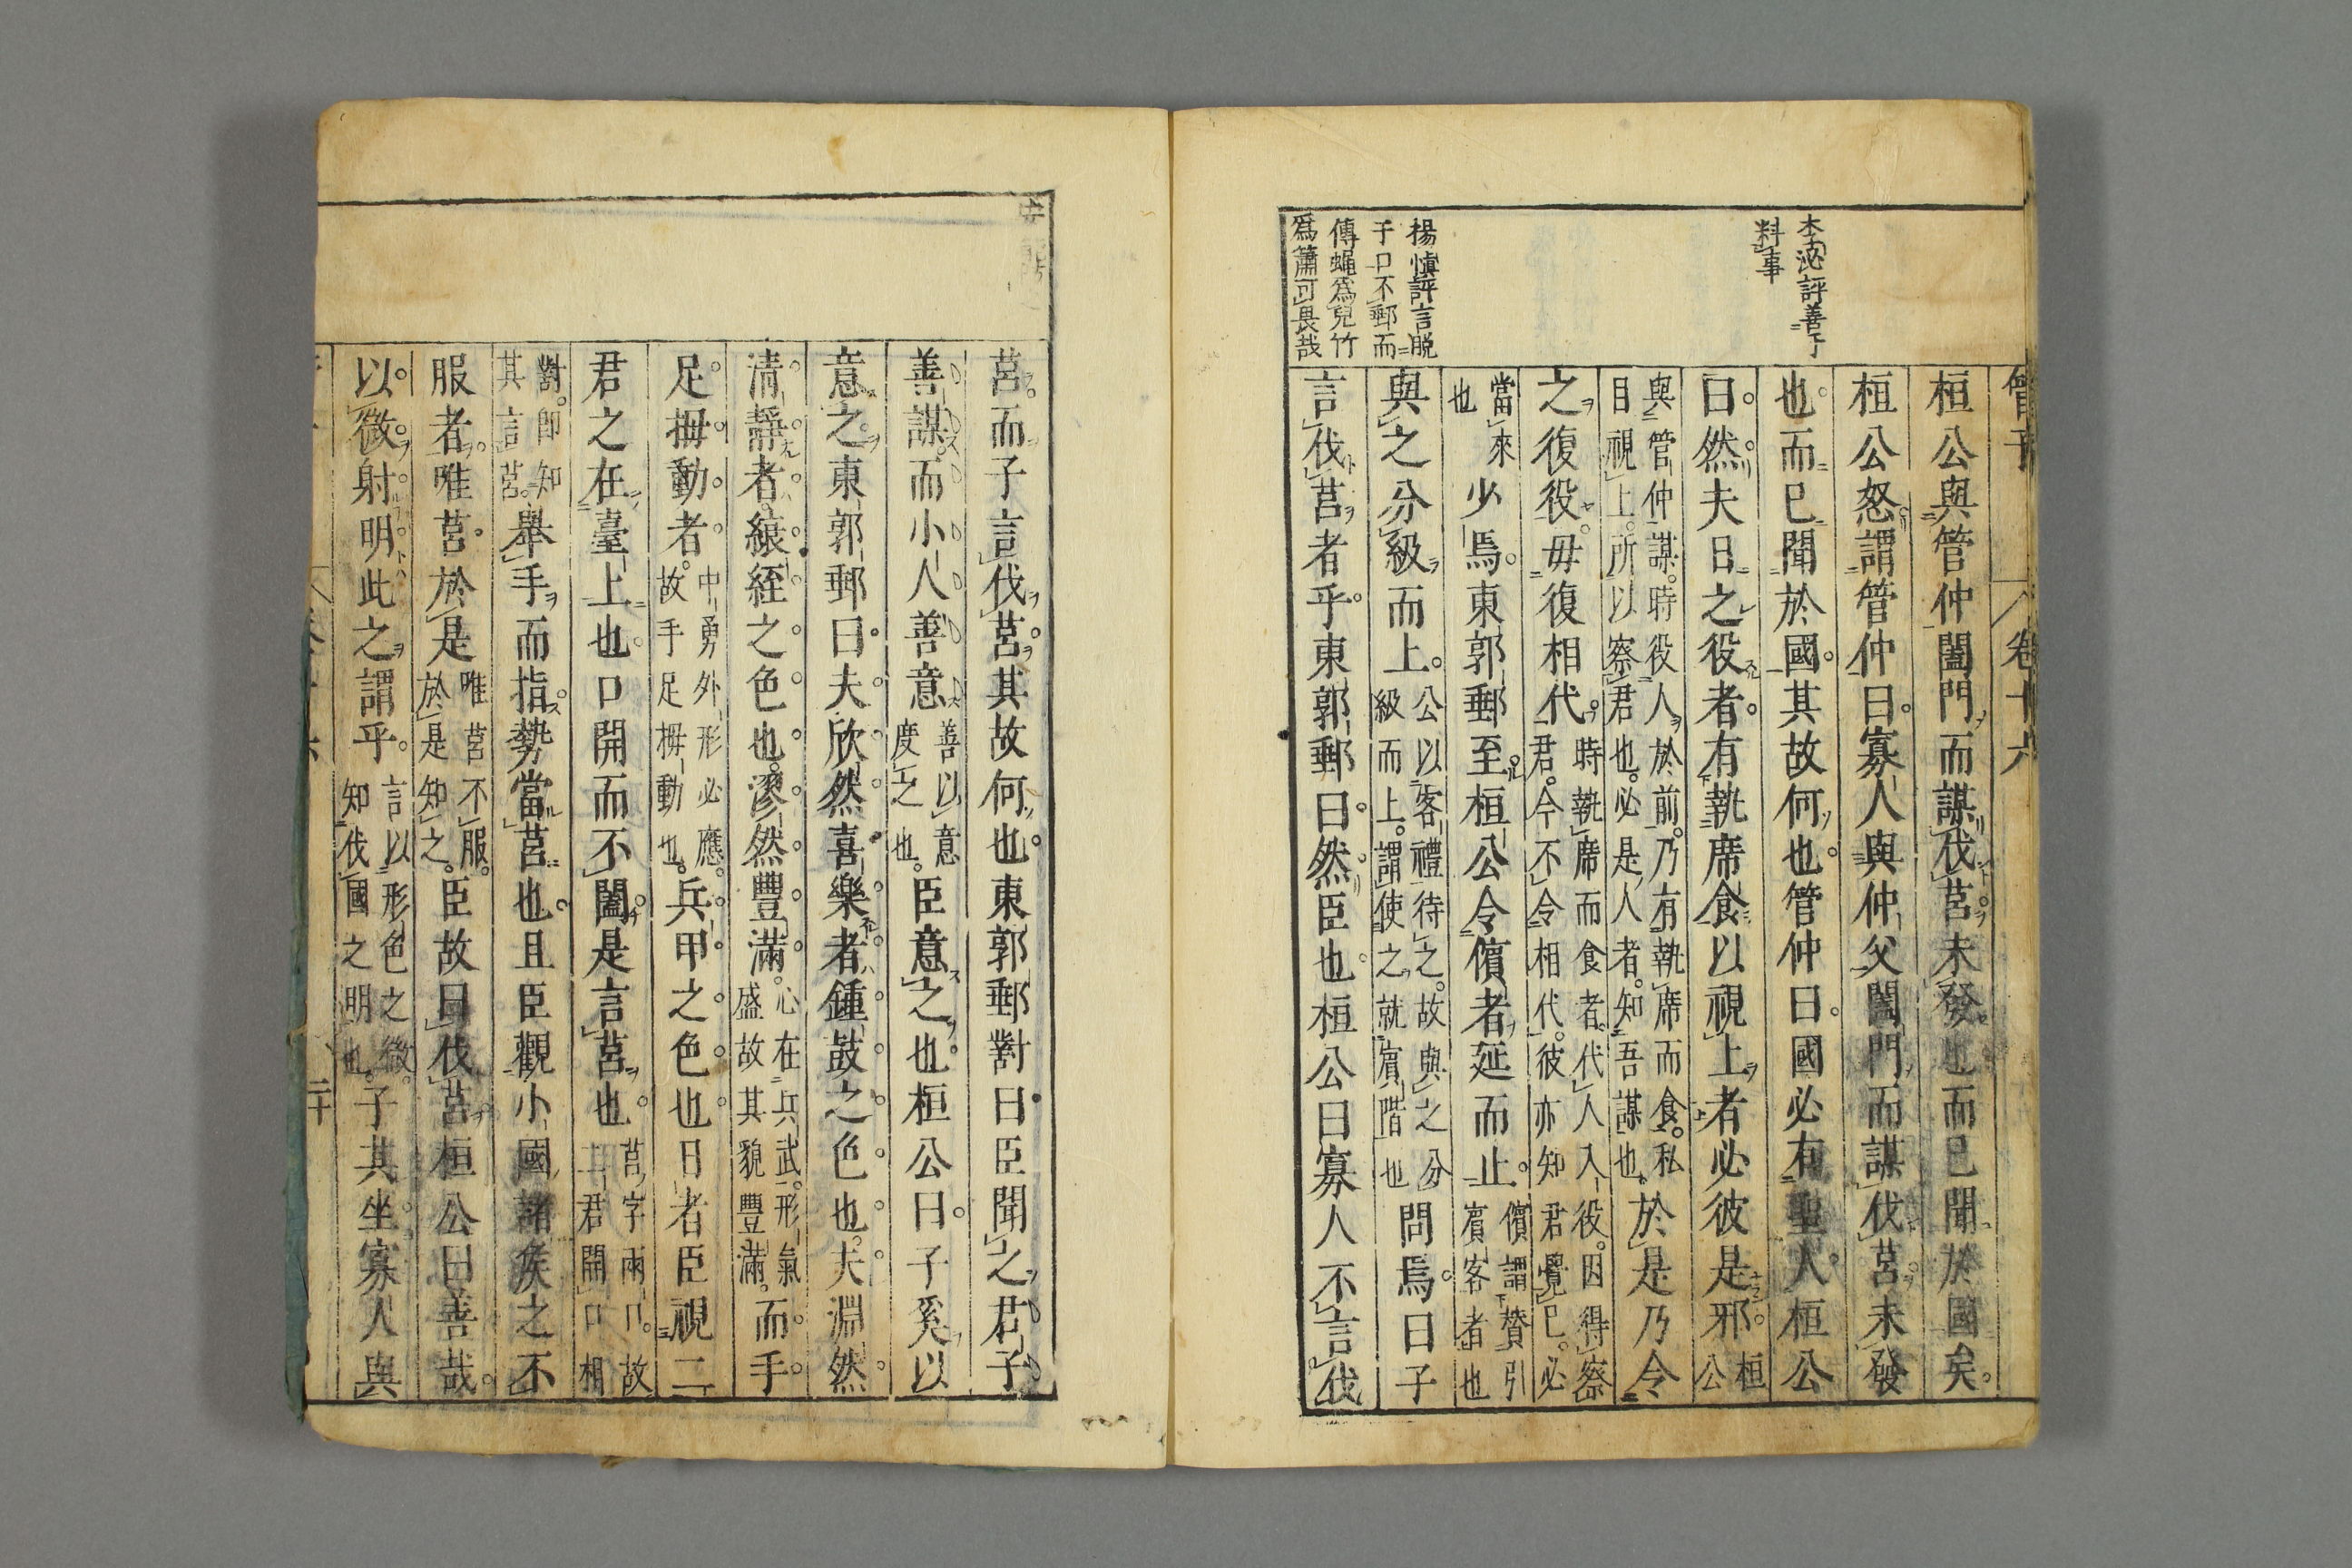 管子
卷十六
李泌評善于
料事
楊慎評言脱
于口不郵而
傳蠅爲兒竹
爲簫可畏哉
桓公與管仲闔門而謀伐莒未發也而已聞於國矣
桓公怒謂管仲曰寡人與仲父闔門而謀伐莒未發
也而已聞於國其故何也管仲曰國必有聖人桓公
曰然夫日之役者有執席食以視上者必彼是邪桓公
與管仲謀時役人於前乃有執席而食私
目視上所以察君也必是人者知吾謀也
於是乃令
之復役毋復相代時執席而食者代人入役因得察
君今不令相代彼亦知君覺已必
當來
也
少焉東郭郵至桓公令儐者延而止儐謂贊引
賔客者也
與之分級而上公以客禮待之故與之分
級而上謂使之就賔階也
問焉曰子
言伐莒者乎東郭郵曰然臣也桓公曰寡人不言伐
莒而子言伐莒其故何也東郭郵對曰臣聞之君子
善謀而小人善意善以意
度之也
臣意之也桓公曰子奚以
意之東郭郵曰夫欣然喜樂者鍾鼓之色也夫淵然
清靜者縗絰之色也漻然豐滿心在兵武形氣
盛故其貌豐滿
而手
足拇動者中勇外形必應
故手足拇動也
兵甲之色也日者臣視二
君之在臺上也口開而不闔是言莒也莒字兩口故
二君開口相
對即知
其言莒
舉手而指勢當莒也且臣觀小國諸矦之不
服者唯莒於是唯莒不服
於是知之
臣故曰伐莒桓公曰善哉
以微射明此之謂乎言以形色之微
知伐國之明也
子其坐寡人與
二十